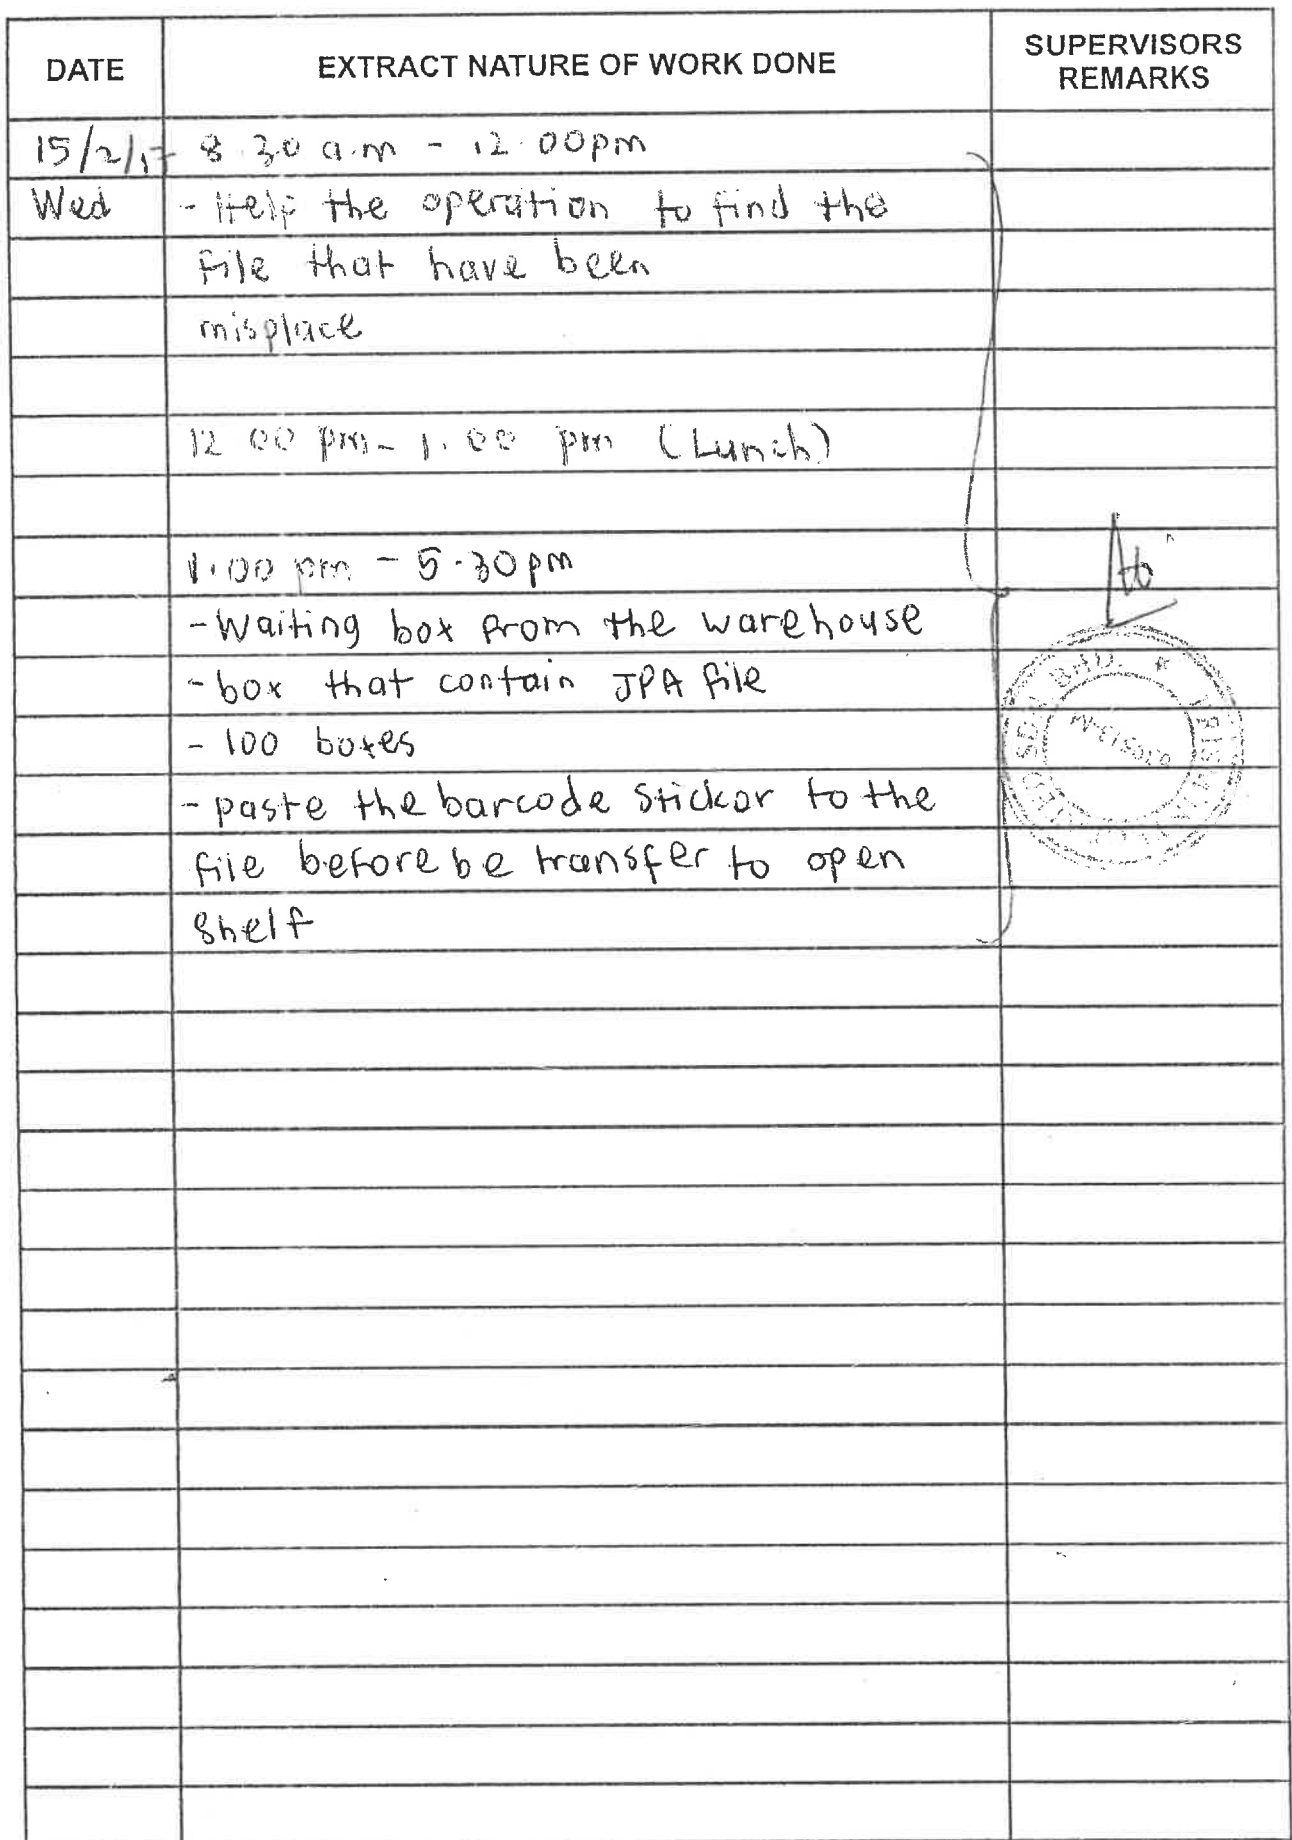 DATE
EXTRACT NATURE OF WORK DONE
SUPERVISORS
REMARKS
15/2/17 8.30 a.m - 12.00pm
Wed - Help the operation to find the
file that have been
misplace
12.00 pm - 1.00 pm (Lunch)
1.00 pm - 5.30pm
- Waiting box from the warehouse
- box that contain JPA file
- 100 boxes
- paste the barcode sticker to the
file before be transfer to open
shelf
SDN BHD. *